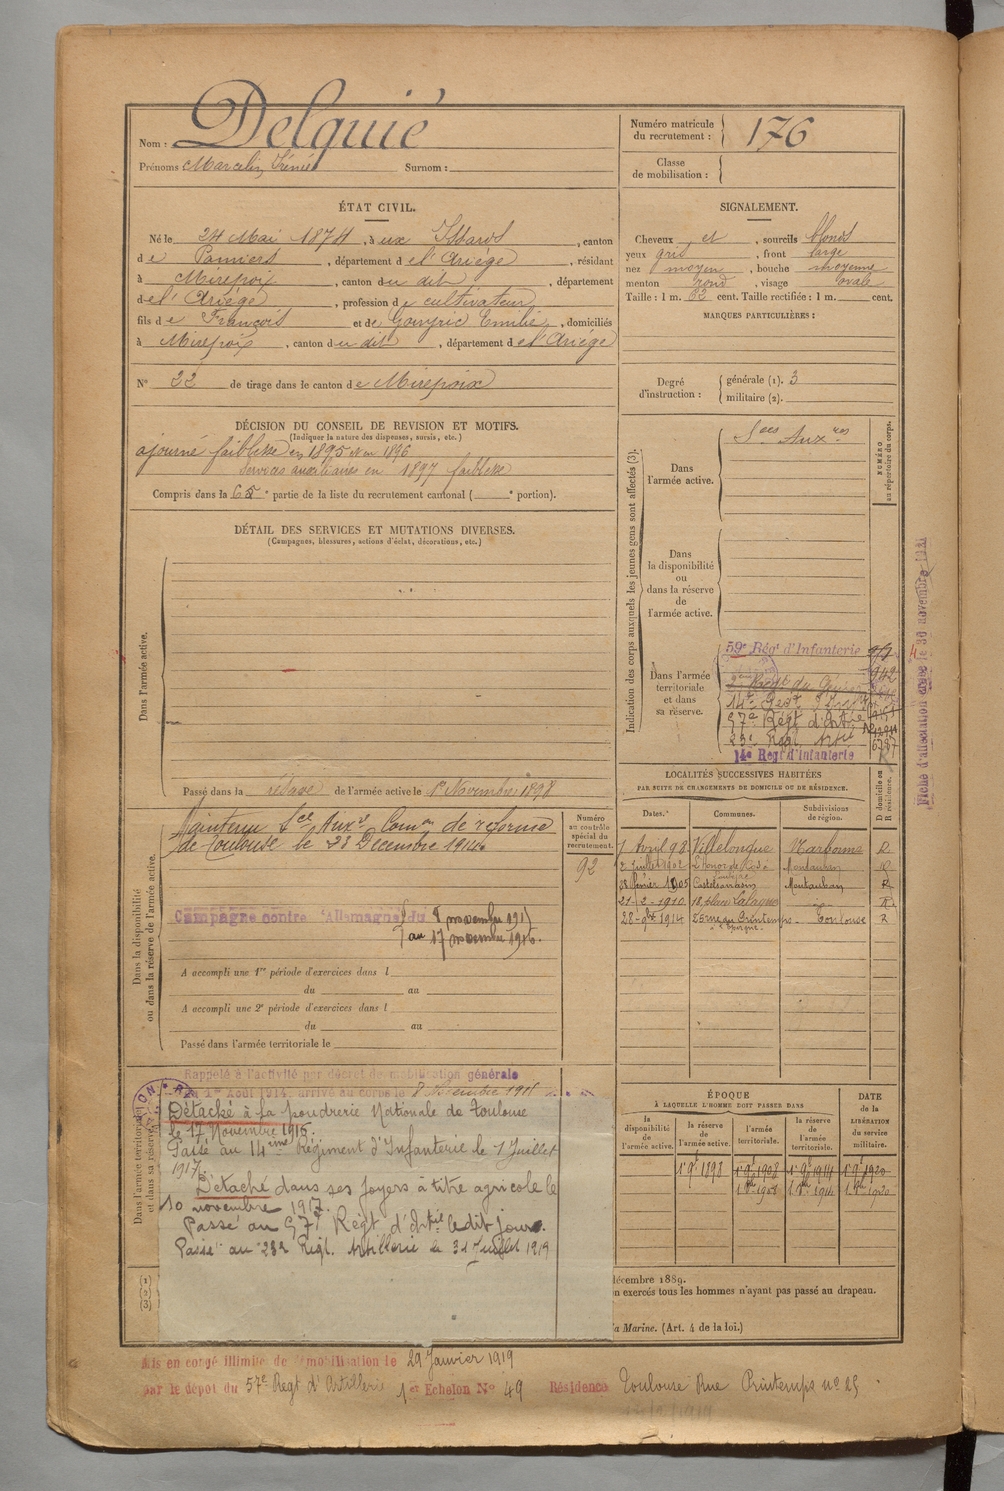 Nom : Delquié
Prénoms Marcelin Irénée Surnom :
Numéro matricule du recrutement : 176
Classe de mobilisation :
ÉTAT CIVIL.
Né le 24 Mai 1874, à ux Issards, canton
de Pamiers, département de l'Ariège, résidant
à Mirepoix, canton du dit, département
de l'Ariège, profession de cultivateur
fils de François et de Gouyric Emilie, domiciliés
à Mirepoix, canton du dit, département de l'Ariège
N° 22 de tirage dans le canton de Mirepoix
SIGNALEMENT.
Cheveux et, sourcils blonds
yeux gris, front large
nez moyen, bouche moyenne
menton rond, visage ovale
Taille : 1 m. 62 cent. Taille rectifiée : 1 m. cent.
MARQUES PARTICULIÈRES :
Degré d'instruction : générale (1). 3
militaire (2).
DÉCISION DU CONSEIL DE REVISION ET MOTIFS.
(Indiquer la nature des dispenses, sursis, etc.)
ajourné faiblesse en 1895 1896
Services auxiliaires en 1897 faiblesse
Compris dans la 6e partie de la liste du recrutement cantonal ( e portion).
DÉTAIL DES SERVICES ET MUTATIONS DIVERSES.
(Campagnes, blessures, actions d'éclat, décorations, etc.)
Dans l'armée active.
Passé dans la réserve de l'armée active le 1er Novembre 1898
Indication des corps auxquels les jeunes gens sont affectés (3).
Dans l'armée active.
Sces Auxres
NUMÉRO au répertoire du corps.
Dans la disponibilité ou dans la réserve de l'armée active.
Dans l'armée territoriale et dans sa réserve.
59e Régt d'Infanterie
14e Regt
57e Régt d'Artie
23e Regt Artie
14e Regt d'Infanterie
Fiche d'affectation le 30 novembre
LOCALITÉS SUCCESSIVES HABITÉES
PAR SUITE DE CHANGEMENTS DE DOMICILE OU DE RÉSIDENCE.
Dates. Communes. Subdivisions de région. D domicile ou R résidence.
7 Avril 98 Villelongue Narbonne D
2 Juillet 1902 L'honor de Cos Montauban R
28 février 1905 Castelsarrasin Montauban R
21-2-1910 18, place Lafayette R
22-9bre 1914 25 rue du Printemps Toulouse R
Dans la disponibilité ou dans la réserve de l'armée active.
Maintenu Sce Auxre Comon de réforme
de Toulouse le 28 Décembre 1914
Numéro au contrôle spécial du recrutement.
92
Campagne contre l'Allemagne du 8 novembre 1915
au 17 novembre 1916.
A accompli une 1re période d'exercices dans l
du au
A accompli une 2e période d'exercices dans l
du au
Passé dans l'armée territoriale le
Dans l'armée territoriale et dans sa réserve.
Rappelé à l'activité par décret de mobilisation générale
du 1er Août 1914, arrivé au corps le 8 Novembre 1915
Détaché à la poudrerie Nationale de Toulouse
le 17 Novembre 1916.
Passé au 14ème Régiment d'Infanterie le 1 Juillet
1917.
Détaché dans ses foyers à titre agricole le
10 novembre 1917.
Passé au 57e Régt d'Artie ledit jour.
Passé au 23e Régt. Artillerie le 31 Juillet 1919
ÉPOQUE
À LAQUELLE L'HOMME DOIT PASSER DANS
la disponibilité de l'armée active.
la réserve de l'armée active.
l'armée territoriale.
la réserve de l'armée territoriale.
DATE de la LIBÉRATION du service militaire.
1er 9bre 1898 1er 9bre 1908 1er 9bre 1914 1er 9bre 1920
(1)
(2)
(3)
décembre 1889.
n exercés tous les hommes n'ayant pas passé au drapeau.
a Marine. (Art. 4 de la loi.)
Mis en congé illimité de démobilisation le 29 Janvier 1919
par le dépôt du 57e Regt d'Artillerie 1er Echelon N° 49 Résidence Toulouse Rue Printemps n° 25